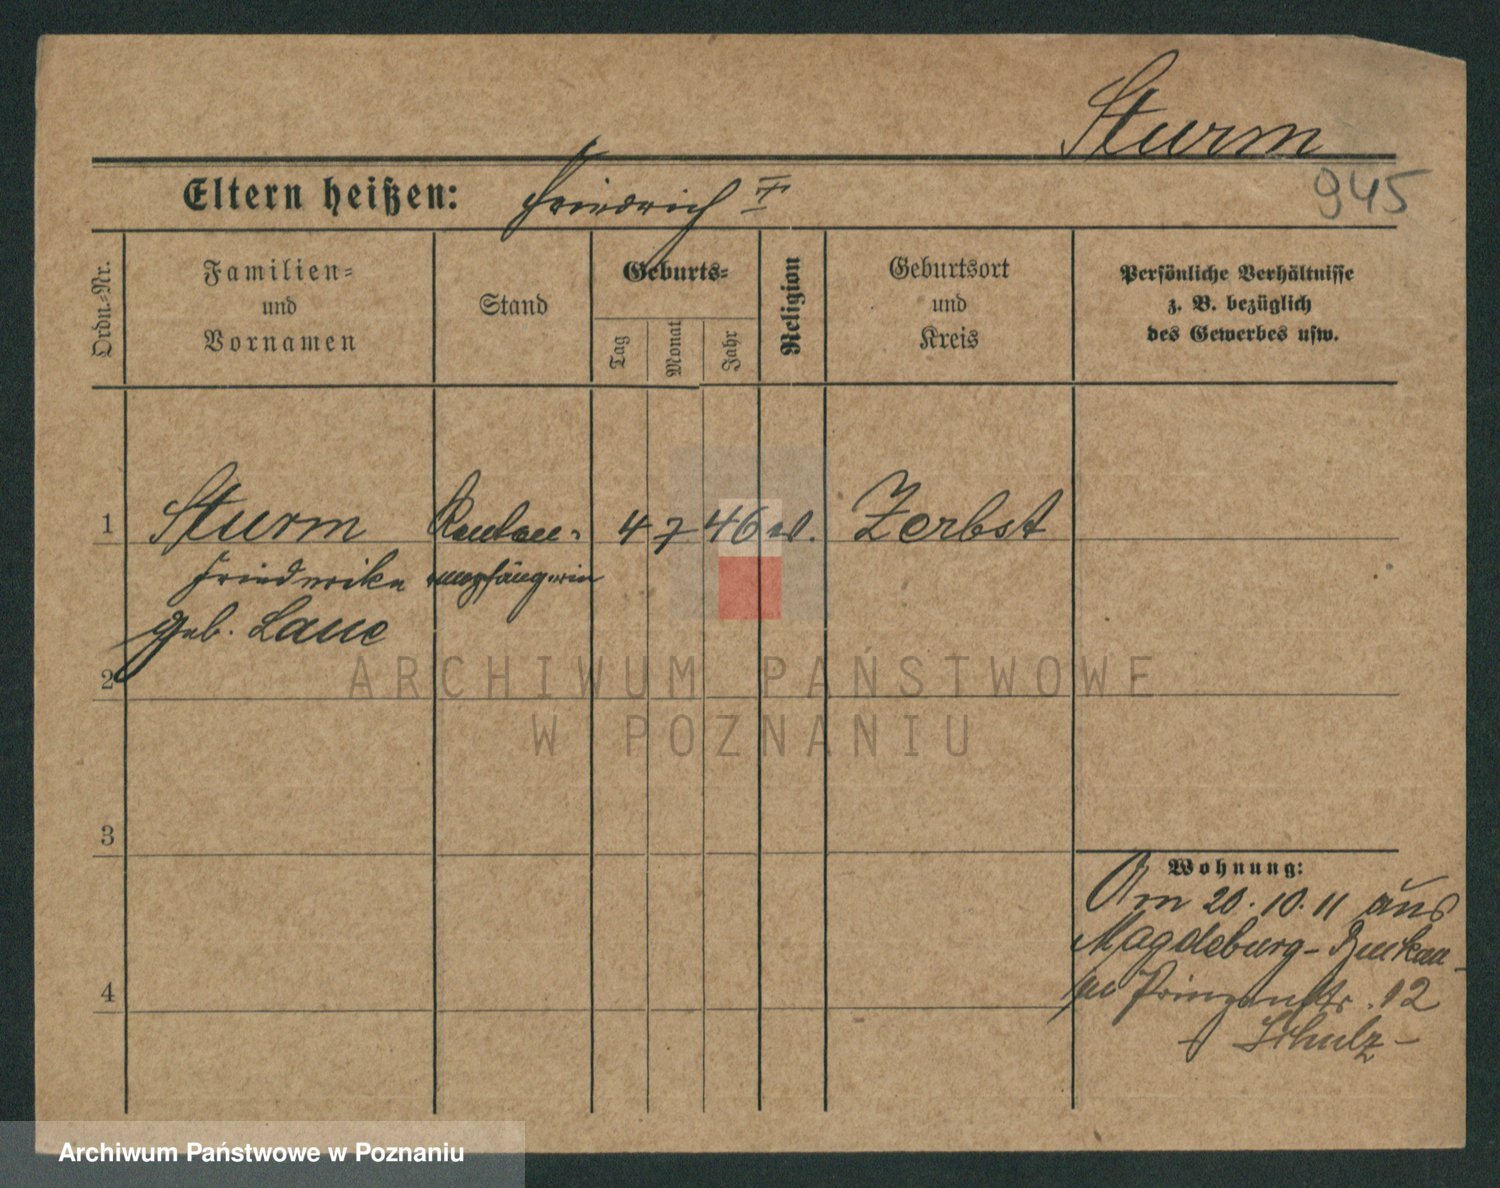 Sturm
945
Eltern heißen: Friedrich I
Ordn.-Nr.
Familien-
und
Vornamen
Stand
Geburts-
Tag
Monat
Jahr
Religion
Geburtsort
und
Kreis
Persönliche Verhältnisse
z. B. bezüglich
des Gewerbes usw.
1 Sturm Renten- 4 7 46 ev. Zerbst
Friederike empfängerin
geb. Laue
2
3
4
Wohnung:
Am 20.10.11 aus
Magdeburg-Buckau
Prinzenstr. 12
Schulz -
ARCHIWUM PAŃSTWOWE
W POZNANIU
Archiwum Państwowe w Poznaniu